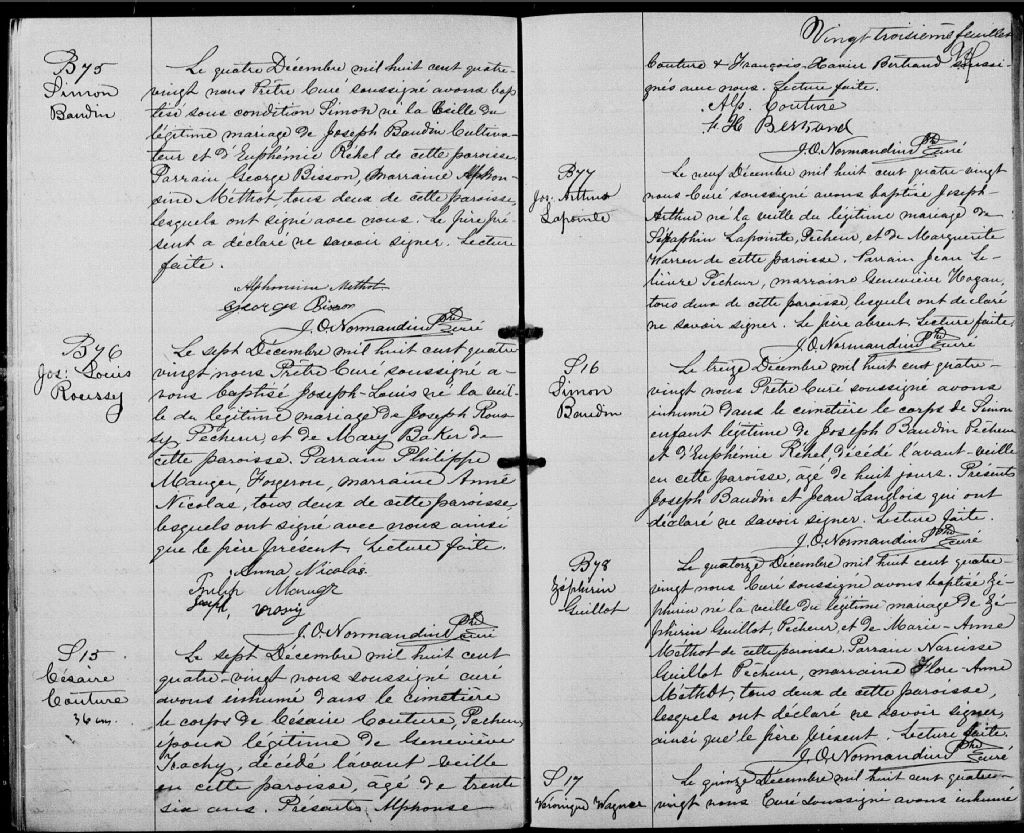 B75
Simon
Baudin
Le quatre Décembre mil huit cent quatre-
vingt nous Prêtre Curé soussigné avons bap
tisé sous condition Simon né la veille du
légitime mariage de Joseph Baudin Cultiva-
teur et d'Euphémie Réhel de cette paroisse.
Parrain George Bisson, marraine Alphon-
sine Méthot, tous deux de cette paroisse,
lesquels ont signé avec nous. Le père pré-
sent a déclaré ne savoir signer. Lecture
faite.
Alphonsine Methot
George Bisson
J. O. Normandin Ptre Curé
B76
Jos: Louis
Roussy
Le sept Décembre mil huit cent quatre
vingt nous Prêtre Curé soussigné a-
vons baptisé Joseph-Louis né la veil-
le du légitime mariage de Joseph Rous
sy Pêcheur, et de Mary Baker de
cette paroisse. Parrain Philippe
Mauger, Forgeron, marraine Anne
Nicolas, tous deux de cette paroisse,
lesquels ont signé avec nous ainsi
que le père présent. Lecture faite.
Anna Nicolas.
Philip Maugr
Joseph
J. O. Normandin Ptre Curé
S15
Césaire
Couture
36 ans.
Le sept Décembre mil huit cent
quatre-vingt nous soussigné curé
avons inhumé dans le cimetière
le corps de Césaire Couture, Pêcheur,
époux légitime de Geneviève
décédé l'avant-veille
en cette paroisse, âgé de trente
six ans. Présents Alphonse
Vingt troisième feuillet
Couture & François-Xavier Bertrand soussi-
gnés avec nous. Lecture faite.
Alp. Couture
F X Bertrand
J. O. Normandin Ptre Curé
B77
Jos: Arthur
Lapointe
Le neuf Décembre mil huit cent quatre vingt
nous Curé soussigné avons baptisé Joseph-
Arthur né la veille du légitime mariage de
Séraphin Lapointe, Pêcheur, et de Marguerite
Warren de cette paroisse. Parrain Jean Le-
lièvre Pêcheur, marraine Geneviève Hogan,
tous deux de cette paroisse, lesquels ont déclaré
ne savoir signer. Le père absent. Lecture faite.
J. O. Normandin Ptre Curé
S16
Simon
Baudin
Le treize Décembre mil huit cent quatre-
vingt nous Prêtre Curé soussigné avons
inhumé dans le cimetière le corps de Simon
enfant légitime de Joseph Baudin Pêcheur
et d'Euphémie Réhel, décédé l'avant-veille
en cette paroisse, âgé de huit jours. Présents
Joseph Baudin et Jean Langlois qui ont
déclaré ne savoir signer. Lecture faite.
J. O. Normandin Ptre Curé
B78
Zéphirin
Guillot
Le quatorze Décembre mil huit cent quatre-
vingt nous Curé soussigné avons baptisé Zé-
phirin né la veille du légitime mariage de Zé-
phirin Guillot, Pêcheur, et de Marie-Anne
Méthot de cette paroisse. Parrain Narcisse
Guillot Pêcheur, marraine Flore-Anne
Méthot, tous deux de cette paroisse,
lesquels ont déclaré ne savoir signer,
ainsi que le père présent. Lecture faite.
J. O. Normandin Ptre Curé
S17
Véronique Wagner
Le quinze Décembre mil huit cent quatre-
vingt nous Curé soussigné avons inhumé